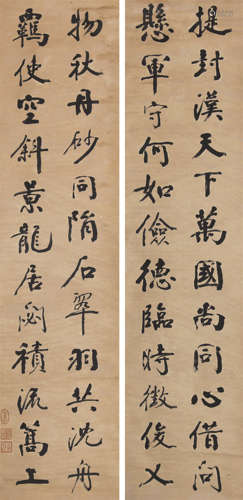 提封漢天下萬國尚同心借問
懸軍守何如儉德臨時徵俊乂
物秋丹砂同隕石翠羽共沈舟
羈使空斜景龍居閟積流篙工